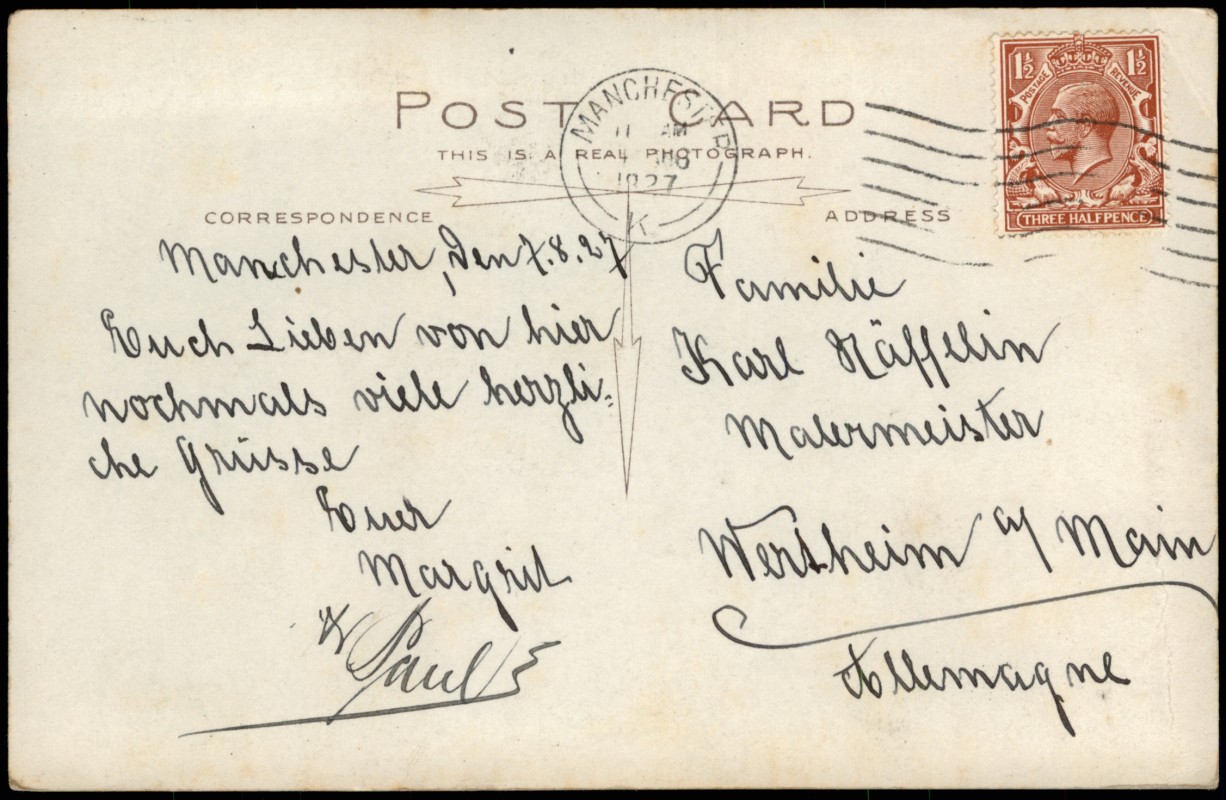 POST CARD
THIS IS A REAL PHOTOGRAPH.
CORRESPONDENCE
ADDRESS
MANCHESTER
11 AM
1927
K
1½ 1½
POSTAGE REVENUE
THREE HALFPENCE
Manchester, den 7.8.27
Euch Lieben von hier
nochmals viele herzli-
che Grüsse
Euer
Margrit
& Paul
Familie
Karl Häffelin
Malermeister
Wertheim a/ Main
Allemagne